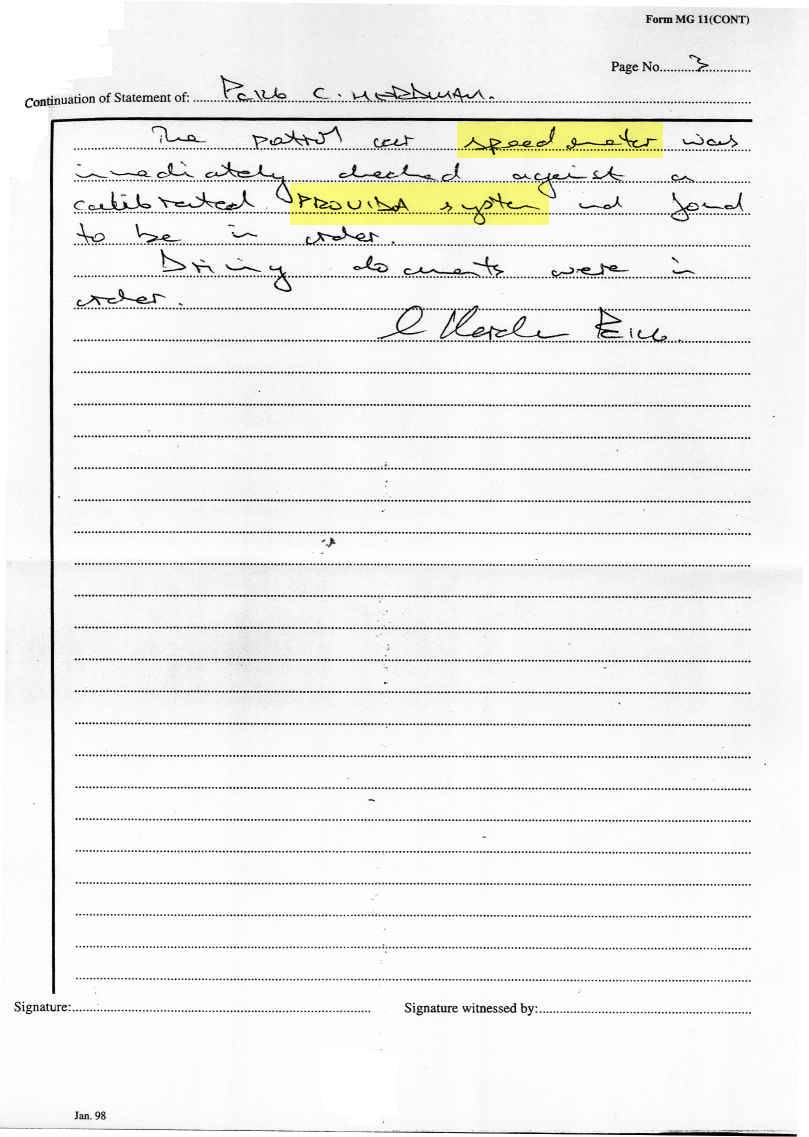 Form MG 11(CONT)
Page No. 3
Continuation of Statement of: C. HERDMAN.
The patrol car speedometer was
immediately checked against a
calibrated PROVIDA system and found
to be in order.
Driving documents were in
order.
Signature:
Signature witnessed by:
Jan. 98